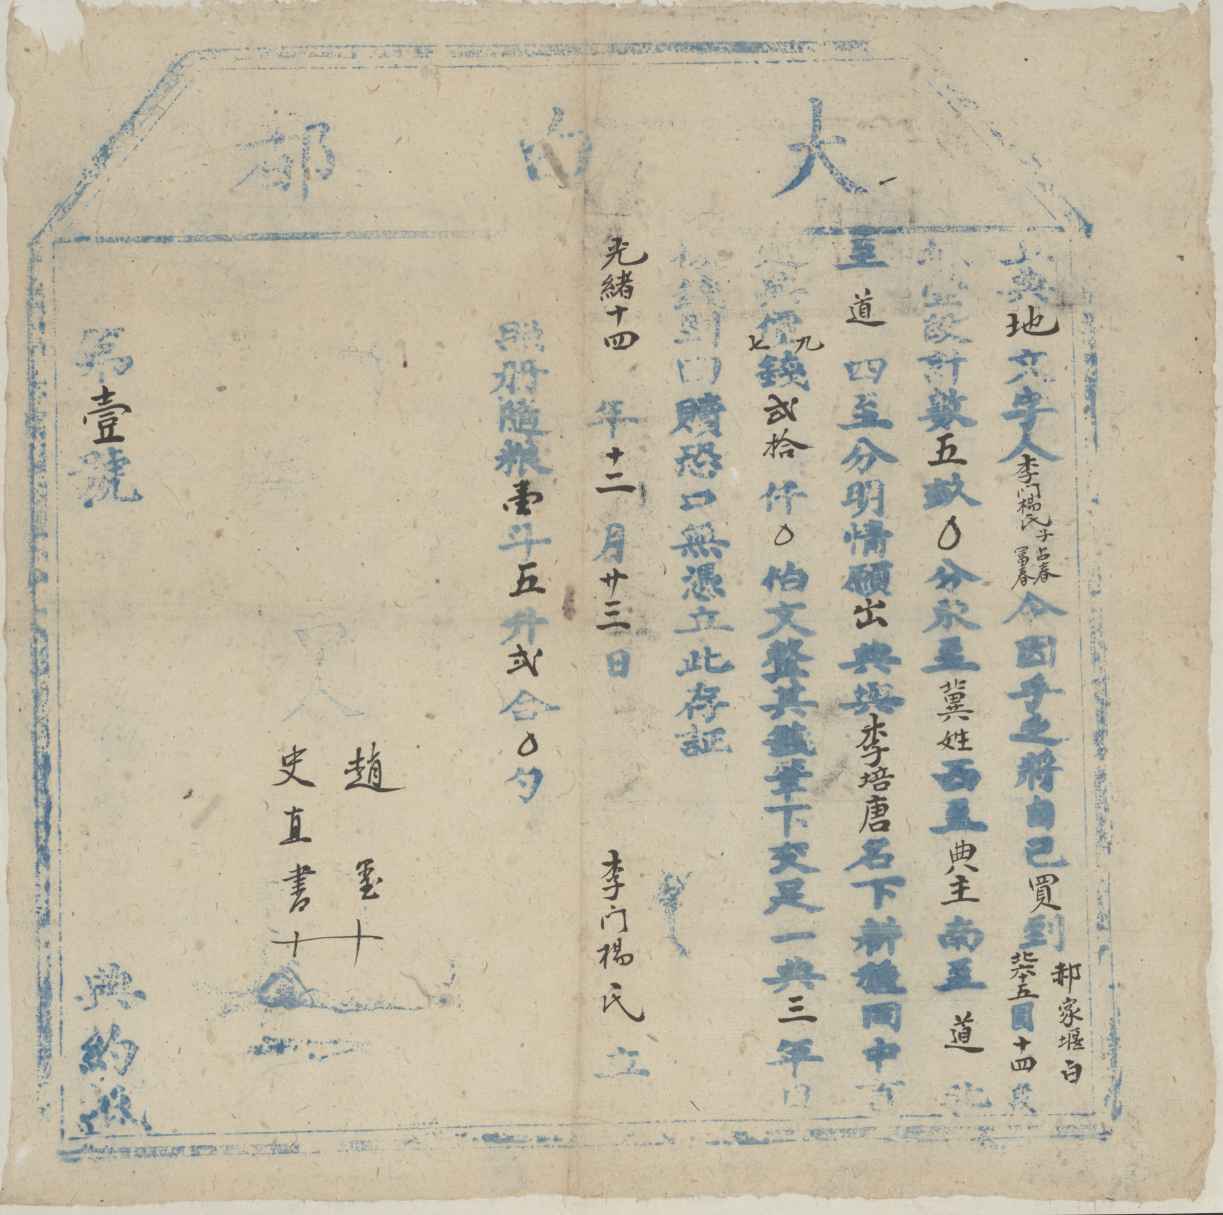 大向郝
立典地文字人李門楊氏子占春富春今因手乏將自己買到郝家堰白北六十五圓十四段
地壹段計數五畝〇分東至冀姓西至典主南至道北
至道四至分明情願出典與李培唐名下耕種同中言
定典價錢七九弍拾仟〇佰文整其錢筆下交足一典三年日
後錢到回贖恐口無憑立此存証
光緒十四年十二月廿三日李門楊氏立
照册隨粮壹斗五升弍合〇勺
中人
趙璽十
史直書十
第壹號
典約